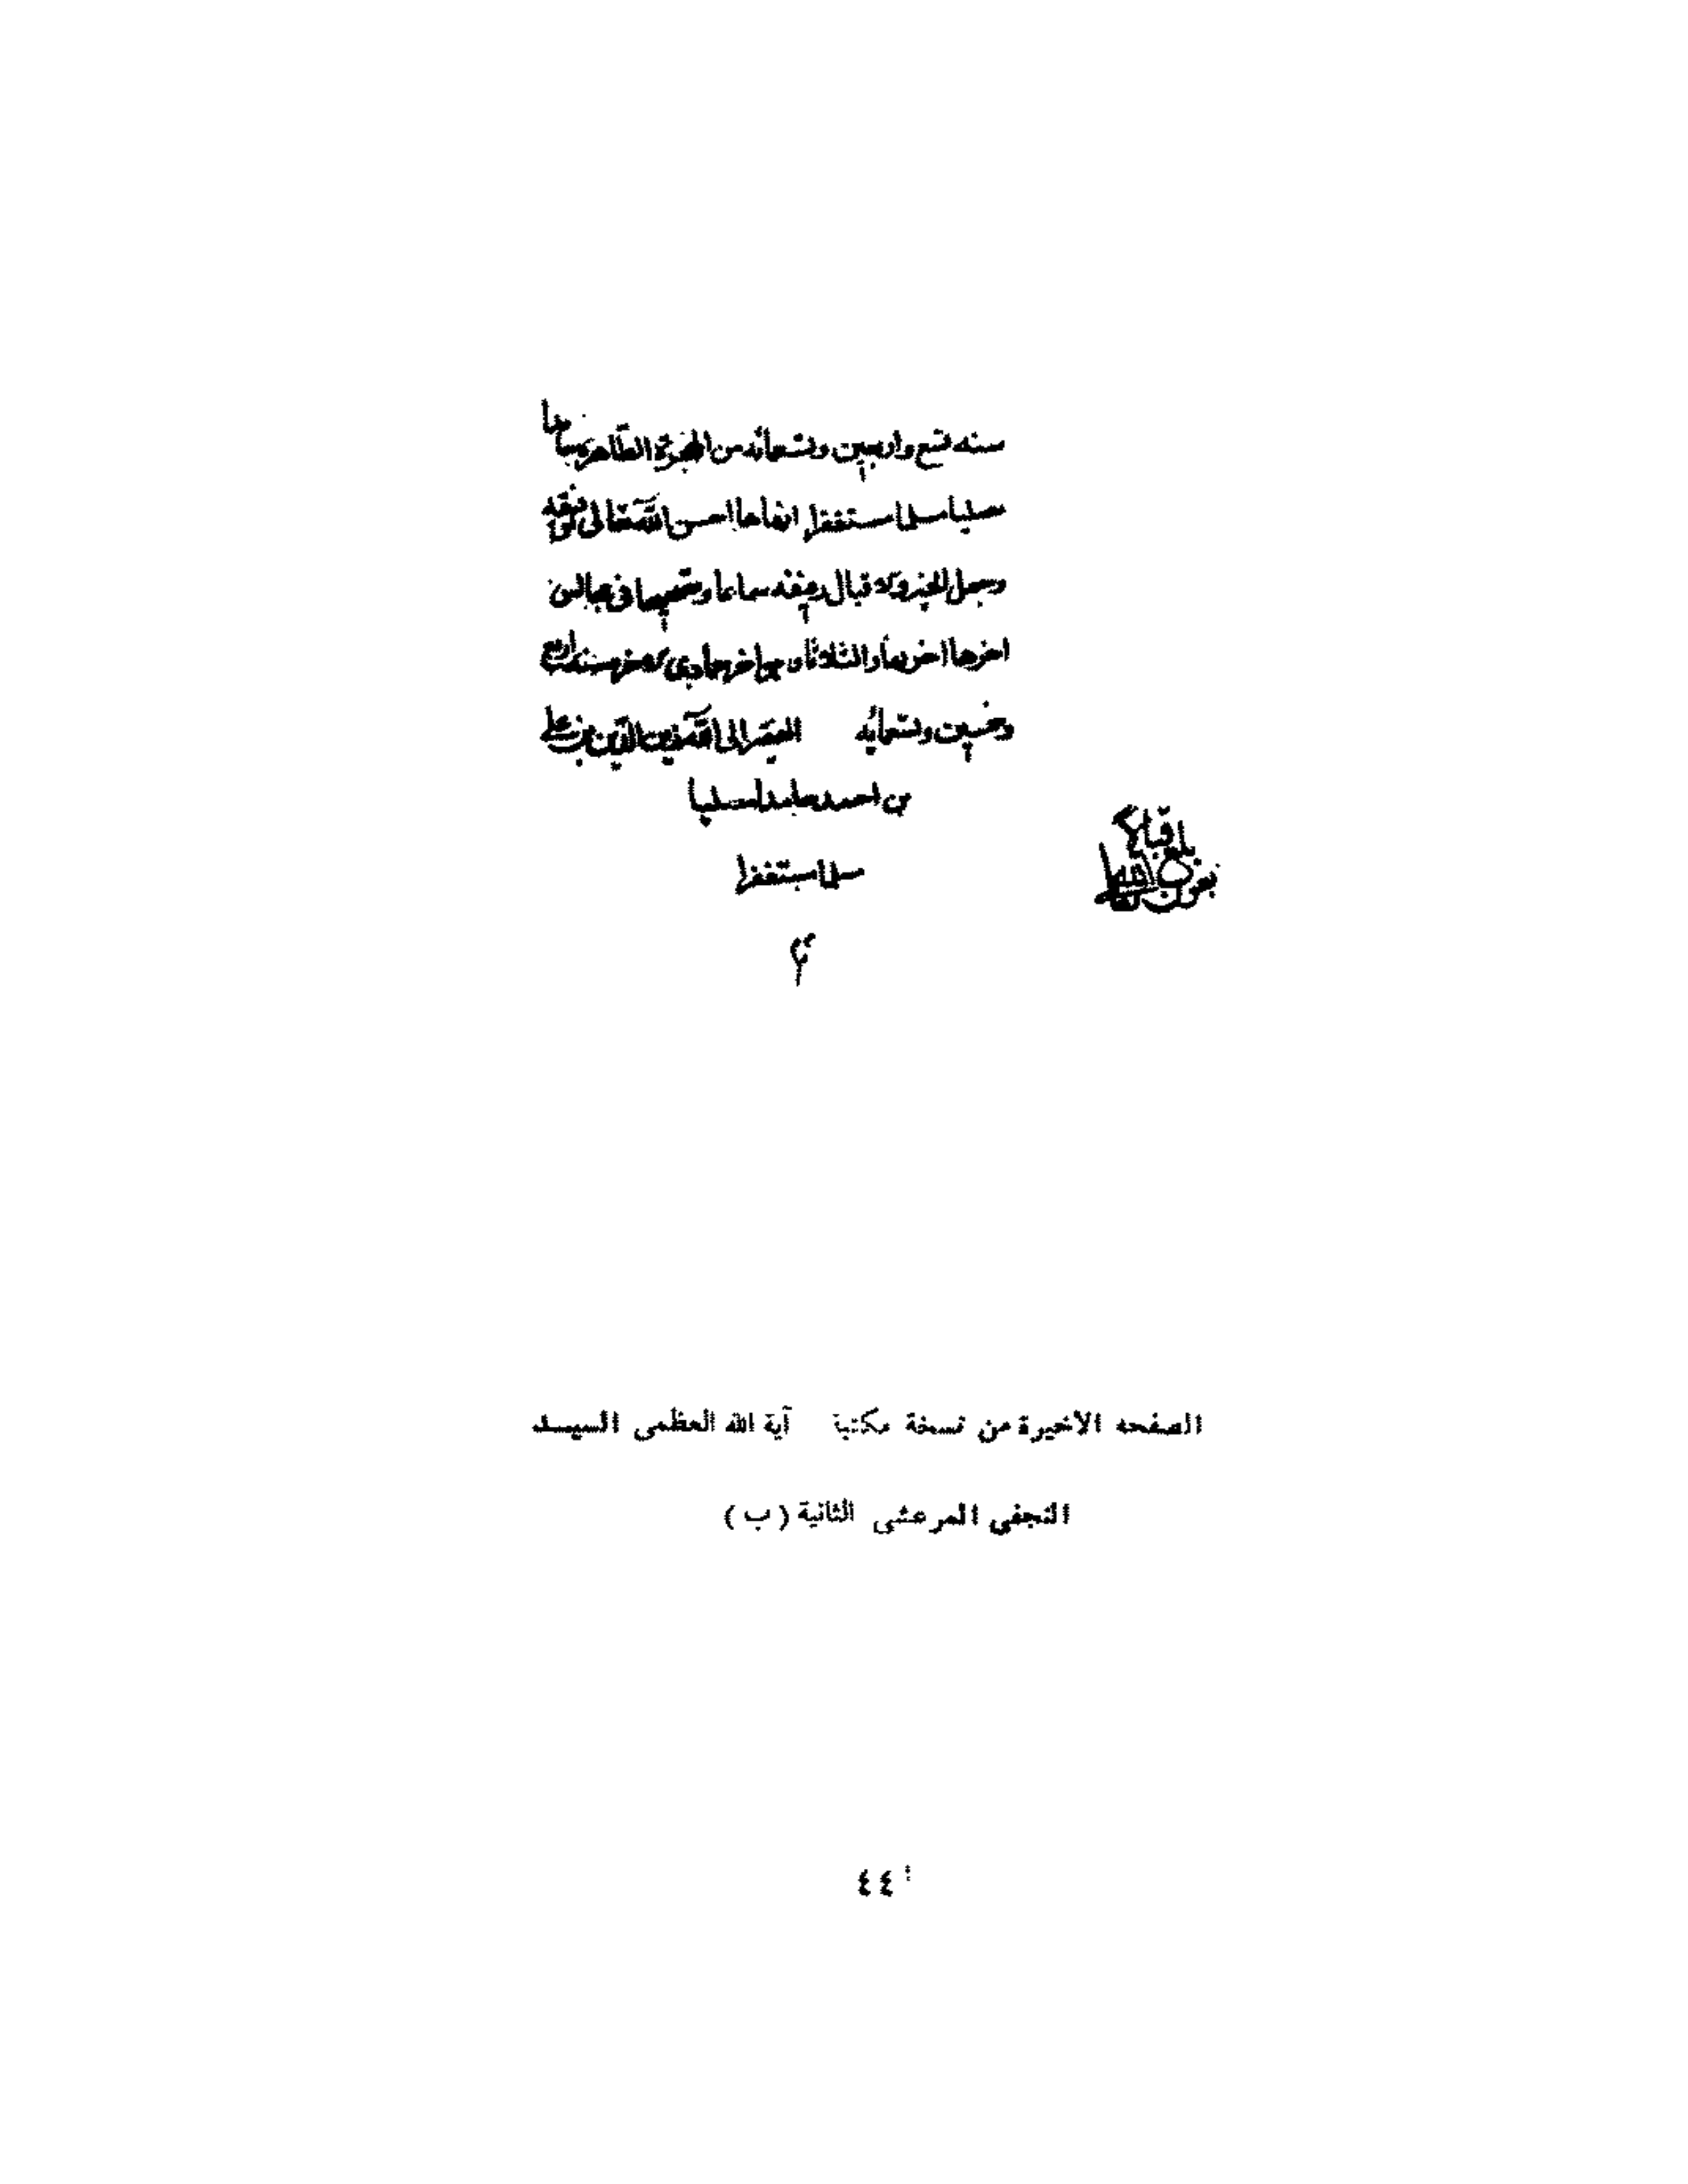 سنه تسع واربعين وتسعمائه من الهجرة الطاهرة حامدا
مصليا مسلما مستغفرا انهاها احسن الله تعالى توفيقه
وجعل الخير رفيقه سماعا في مجالس
اخرها اخر نهار الثلاثاء جمادى سنه اربع
وخمسين وتسعمائه الفقير الى الله زين الدين بن علي
بن احمد حامدا مصليا
مسلما مستغفرا
بلغ
بعون الله
الصفحه الاخيرة من نسخة مكتبة آية الله العظمى السيــد
النجفي المرعشي الثانية ( ب )
٤٤